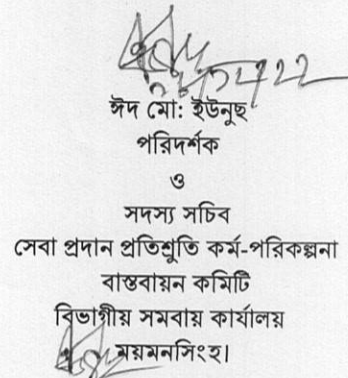 মো: ইউনুছ
পরিদর্শক
ও
সদস্য সচিব
সেবা প্রদান প্রতিশ্রুতি কর্ম-পরিকল্পনা
বাস্তবায়ন কমিটি
বিভাগীয় সমবায় কার্যালয়
ময়মনসিংহ।